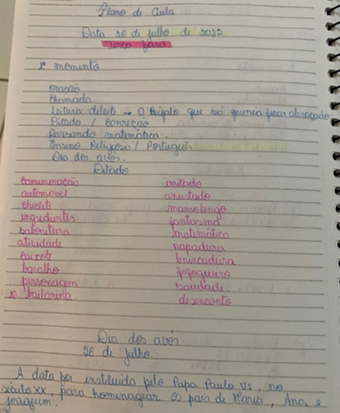 Plano de Aula
Data 26 de julho de 2022
terça feira
1º momento
Oração
Chamada
Leitura deleite → O que só queria ficar abraçado
Estudo / Correção
Revisando matemática.
Ensino Religioso / Português
Dia dos avós.
Ditado
comemoração
automóvel
chiclete
ingredientes
babosatura
atividade
baralho
personagem
bailarina
assustado
mamolengo
fantasma
matemática
rapadura
brincadeira
fofoqueiro
saudade
desencanto
Dia dos avós
26 de julho
A data foi instituída pelo Papa Paulo VI, no
século XX, para homenagear os pais de Maria, Ana e
Joaquim.